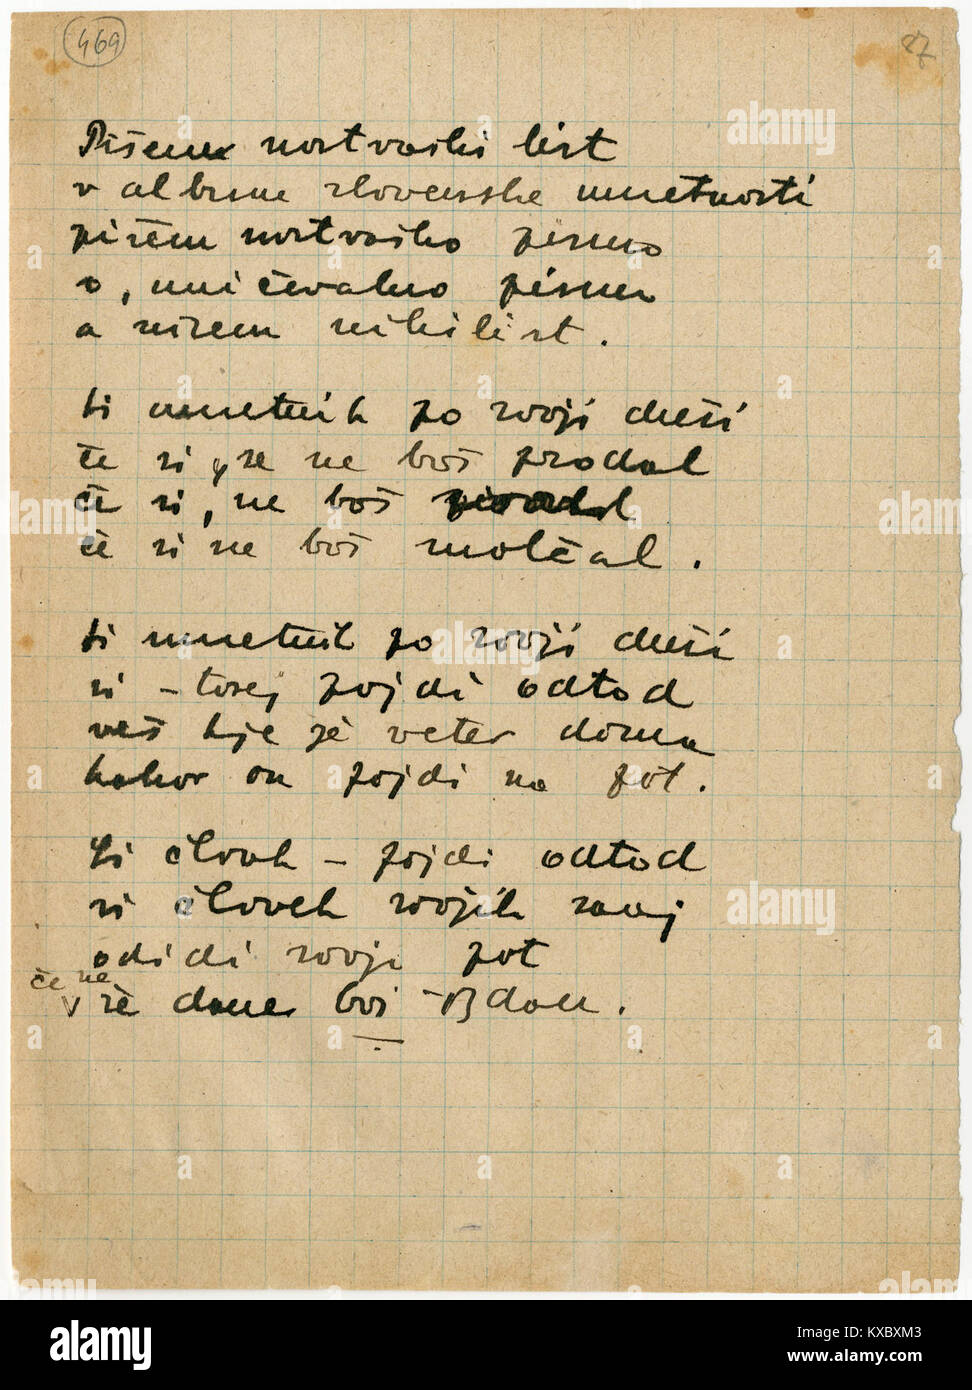 469
27
Pišem mrtvaški list
v album slovenske umetnosti
pišem mrtvaško pismo
o, uničevalno pismo
a nisem nihilist.
ti umetnik po svoji duši
če si, se ne boš prodal
če si, ne boš
če si ne boš molčal.
ti umetnik po svoji duši
si – torej pojdi odtod
veš kje je veter doma
kakor on pojdi na pot.
Ti človek – pojdi odtod
si človek svojih sanj
odidi svojo pot
če ne
še danes boš
alamy
Image ID: KXBXM3
www.alamy.com